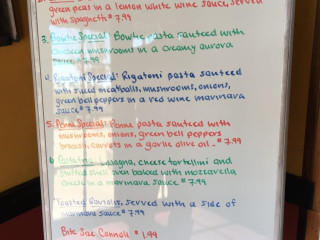 green peas in a lemon white wine sauce, served
with Spaghetti $ 7.99
3. Bowtie Special: Bowtie pasta sauteed with
chicken mushrooms in a creamy aurora
sauce $ 7.99
4. Rigatoni Special: Rigatoni pasta sauteed
with sliced meatballs, mushrooms, onions,
green bell peppers in a red wine marinara
sauce $ 7.99
5. Penne Special: Penne pasta sauteed with
mushrooms, onions, green bell peppers
broccoli, carrots in a garlic olive oil - $ 7.99
6. Lasagna, cheese tortellini and
stuffed shell oven baked with mozzarella
cheese in a marinara sauce $ 7.99
Toasted Raviolis, served with a side of
marinara sauce $ 7.99
Bite Size Cannoli $ 1.99